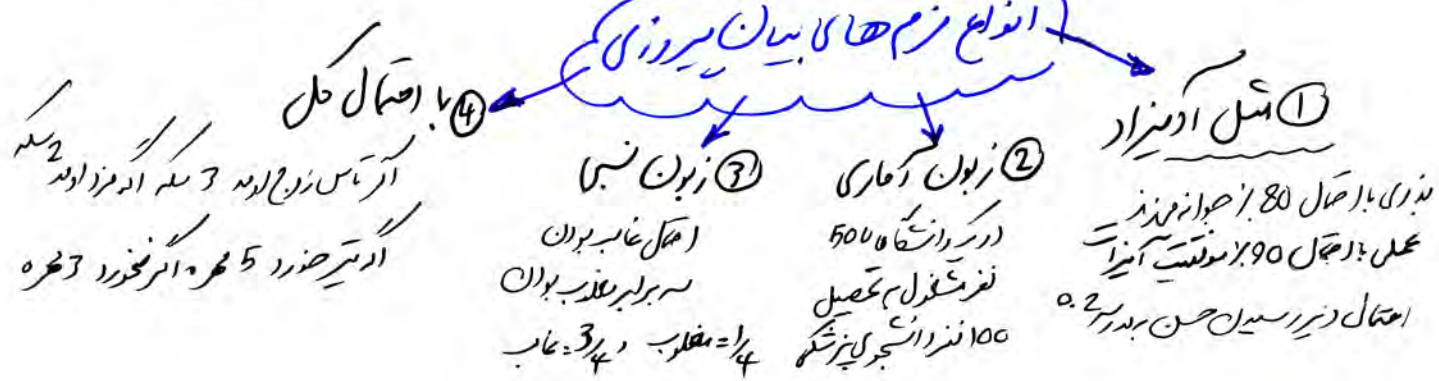 انواع فرم های بیان پیروزی
① مثل آدمیزاد
بذری با احتمال 80٪ جوانه میزند
عملی با احتمال 90٪ موفقیت آمیز است
احتمال دیر رسیدن حسن به مدرسه 0.2
② زبون آماری
در یک دانشگاه 500
نفر مشغول به تحصیل
100 نفر دانشجوی پزشکی
③ زبون نسبی
احتمال غالب بودن
سه برابر مغلوب بودن
1/4 = مغلوب , 3/4 = غالب
④ با احتمال کل
اگر تاس زوج اومد 3 سکه اگه فرد اومد 2 سکه
اگه تیر خورد 5 مهره اگر نخورد 3 مهره